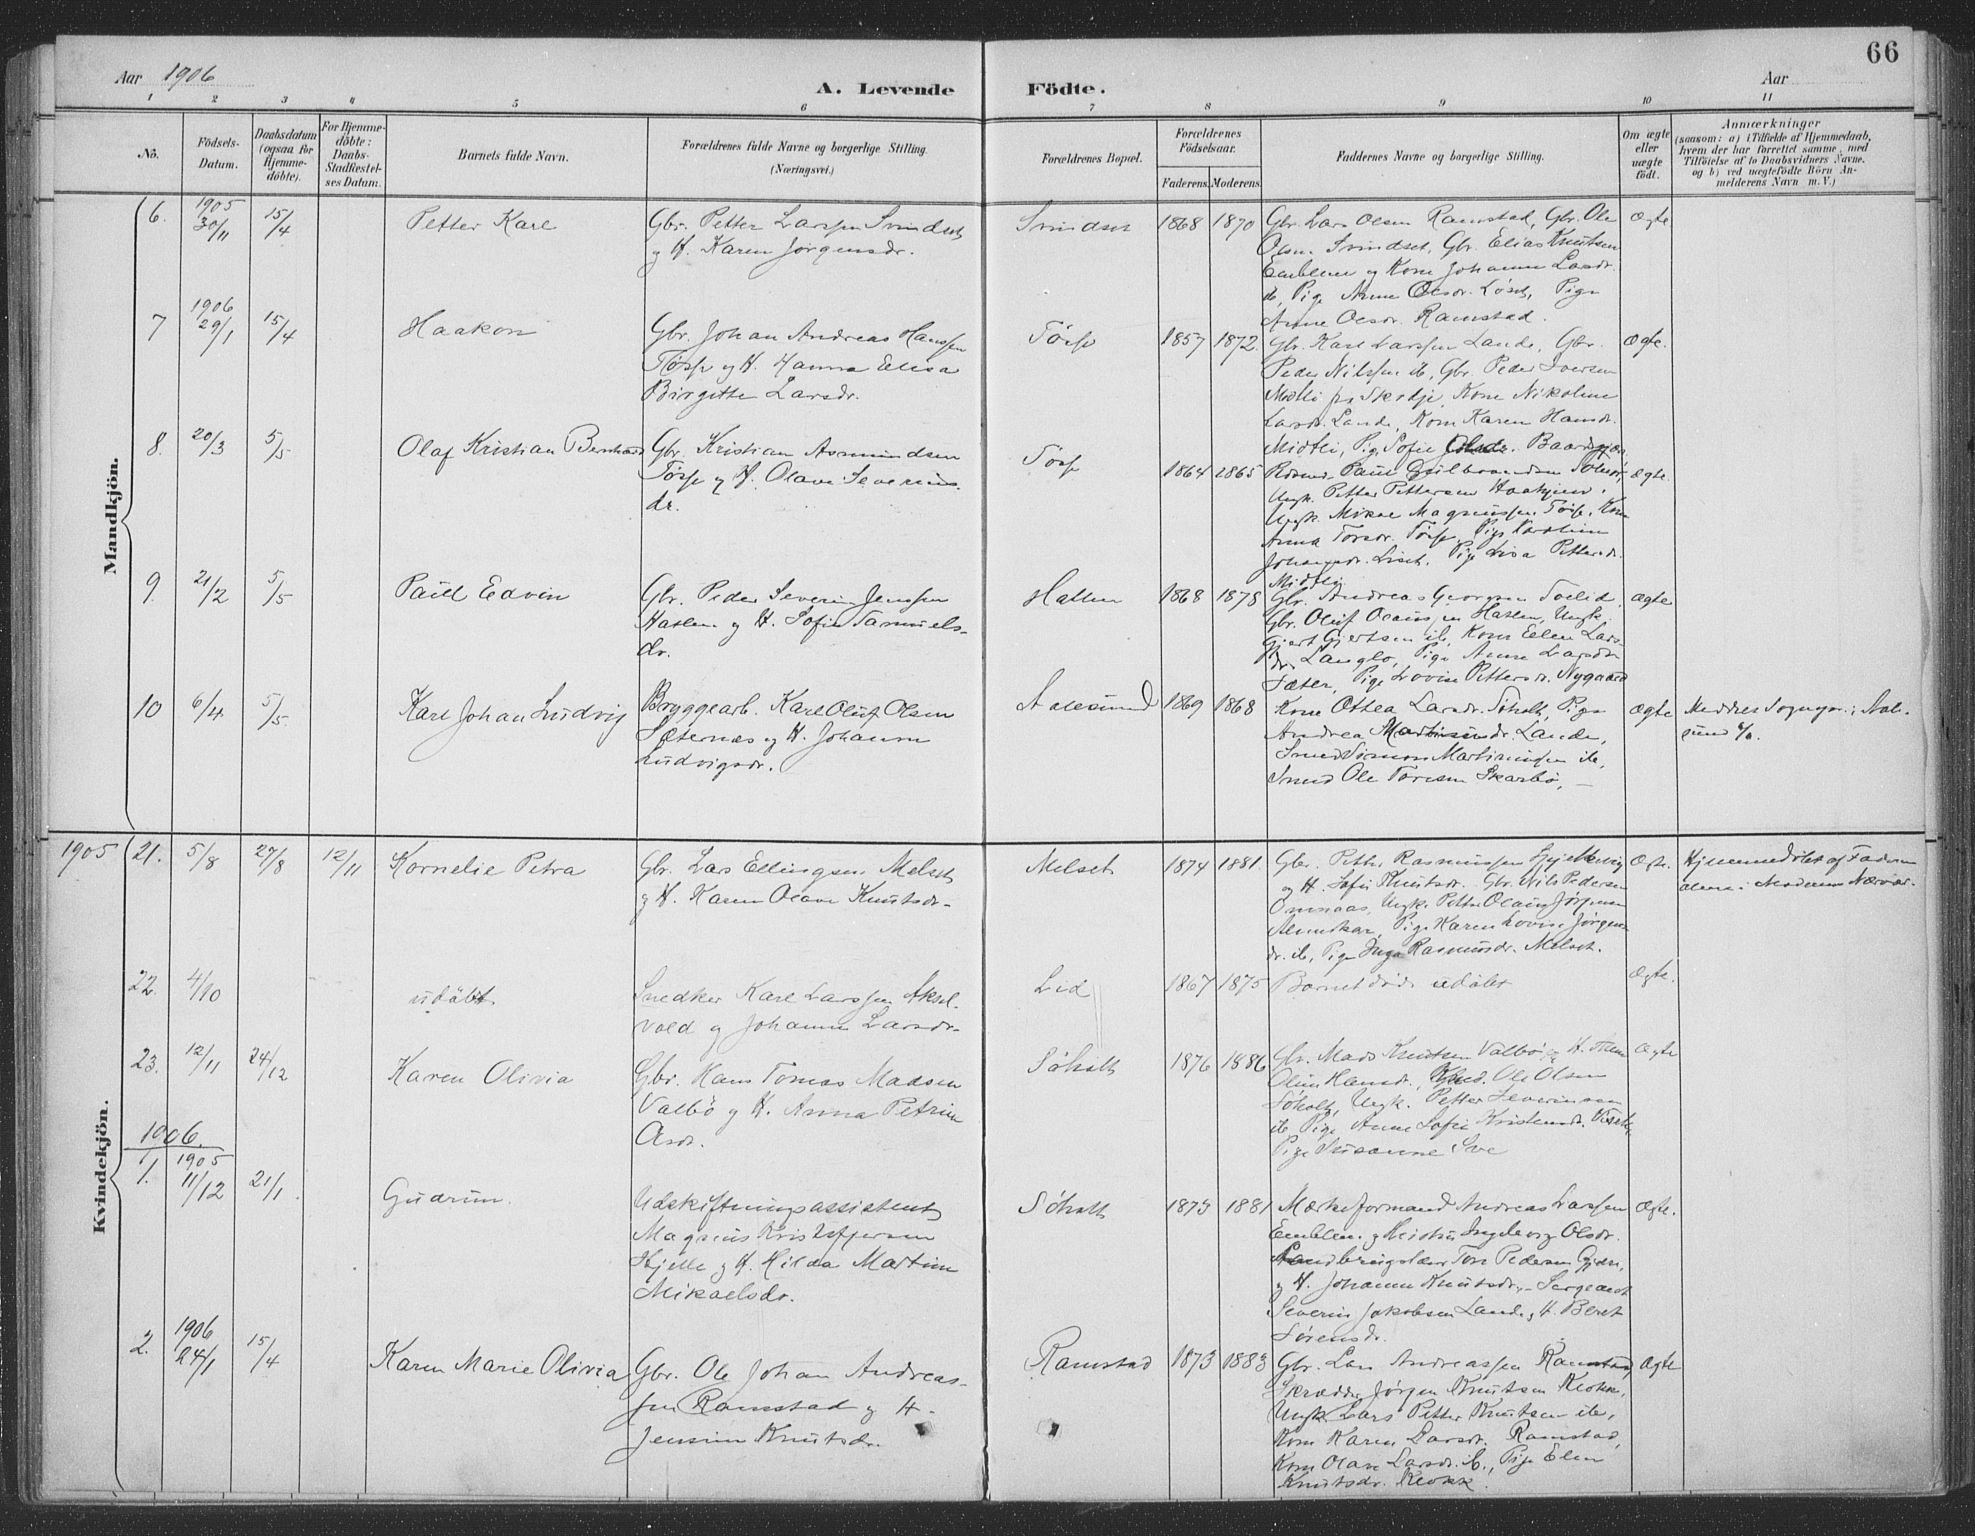 66
Aar 1906
A. Levende Födte.
Aar
1 2 3 4 5 6 7 8 9 10 11
No.
Födsels-
Datum.
Daabsdatum
(ogsaa for
Hjemme-
döbte).
For Hjemme-
döbte:
Daabs-
Stadfæstel-
ses Datum.
Barnets fulde Navn.
Forældrenes fulde Navne og borgerlige Stilling.
(Næringsvei.)
Forældrenes Bopæl.
Forældrenes
Födselsaar.
Faderens. Moderens.
Faddernes Navne og borgerlige Stilling.
Om ægte
eller
uægte
födt.
Anmærkninger
(saasom: a) i Tilfælde af Hjemmedaab,
hvem der har forrettet samme, med
Tilföielse af to Daabsvidners Navne.
og b) ved uægtefödte Börn An-
melderens Navn m. V.)
Mandkjön.
6. 1905 30/11 15/4 Petter Karl
Gbr. Petter Larssen Svindset
og H. Karen Jørgensdr.
Svindset 1868 1870
Gbr. Lars Olsen Ramstad, Gbr. Ole
Olsen Svindset, Gbr. Elias Knutsen
Emblem og Kone Johanne Larsdr.
ib, Pige Anne Olsdr. Løset, Pige
Anne Olsdr. Ramstad.
Ægte
7 1906 29/1 15/4 Haakon
Gbr. Johan Andreas Hanssen
Tøsse og H. Hanna Elisa
Birgitte Larsdr.
Tøsse 1857 1872.
Gbr. Karl Larssen Lande, Gbr.
Peder Nilssen ib, Gbr. Peder Iversen
Midtli pr Skodje, Kone Nikoline
Larsdr. Lande, Kone Karen Hansdr.
Midtli, Pige Sofie
Ægte.
8. 20/3 5/5 Olaf Kristian Bernhard
Gbr. Kristian Asmundsen
Tøsse og H. Olave Severins-
dr.
Tøsse 1864 1865
Paul Guilbrandsen
Ungk. Petter Pettersen
Ungk. Mikael Magnussen Tøsse, Kone
Anna Torsdr. Tøsse, Pige Karoline
Johansdr. Liset, Pige Lisa Pettersdr.
Midtli
Ægte.
9. 21/2 5/5 Paul Edvin
Gbr. Peder Severin Jenssen
Hatlen og H. Sofie Samuels-
dr.
Hatlen 1868 1878
Gbr. Andreas Georgsen Solid,
Gbr. Oluf Olaussen Hatlen, Ungk.
Gjert Gjertsen ib, Kone Ellen Lars-
dr. Langlo, Pige Anne Larsdr.
Sæter, Pige Lovise Pettersdr. Nygaard
Ægte
10 6/4 5/5 Karl Johan Ludvig
Bryggearb. Karl Oluf Olsen
Sæternes og H. Johanne
Ludvigsdr.
Aalesund 1869 1868
Kone Ottea Larsdr. Søholt, Pige
Andrea Martinusdr. Lande,
Smed Simon Martinussen ib,
Smed Ole Toresen Skarbø,
Ægte
Meddelt Sognepr. i Aale-
sund
Kvindekjön.
1905 21. 5/8 27/8 12/11 Kornelie Petra
Gbr. Lars Ellingsen Melset
og H. Karen Olave Knutsdr.
Melset 1874 1881.
Gbr. Petter Rasmussen Gjettevig
og H. Sofie Knutsdr. Gbr. Nils Pedersen
Omnaas, Ungk. Petter Olaus Jørgensen
Almskar, Pige Karen Lovise Jørgens-
dr. ib, Pige Inga Rasmusdr. Melset.
Ægte.
Hjemmedøbt af Faderen
alene i Moderens Nærvær.
22. 4/10 udøbt.
Snedker Karl Larssen Aksel-
vold og Johanne Larsdr.
Lid 1867 1875
Barnet døde udøbt
Ægte.
23. 12/11 24/12 Karen Olivia
Gbr. Hans Tomas Madsen
Valbø og H. Anna Petrine
Olsdr.
Søholt 1876 1886
Gbr. Mads Knutsen Valbø og H.
Oline Hansdr., Ole Olsen
Søholt, Ungk. Petter Severinsen
ib Pige Anne Sofie Kristensdr.
Pige Susanne Sve
Ægte
1906.
1. 1905 11/12 21/1 Gudrun.
Udskiftningsassistent
Magnus Kristoffersen
Hjelle og H. Hilda Martine
Mikaelsdr.
Søholt 1873 1881
Andreas Larssen
Emblem og Ingeborg Olsdr.
Tore Pedersen
og H. Johanne Knutsdr. Sergeant
Severin Jakobsen Lande, H. Beret
Sørensdr.
Ægte.
2. 1906 24/1 15/4 Karen Marie Olivia
Gbr. Ole Johan Andreas-
sen Ramstad og H.
Jensine Knutsdr.
Ramstad 1873 1883
Gbr. Lars Andreassen Ramstad,
Skrædder Jørgen Knutsen Klokk,
Ungk Lars Petter Knutsen ib,
Kone Karen Larsdr. Ramstad,
Kone Olave Larsdr. ib., Pige Elen
Knutsdr. Klokk.
Ægte